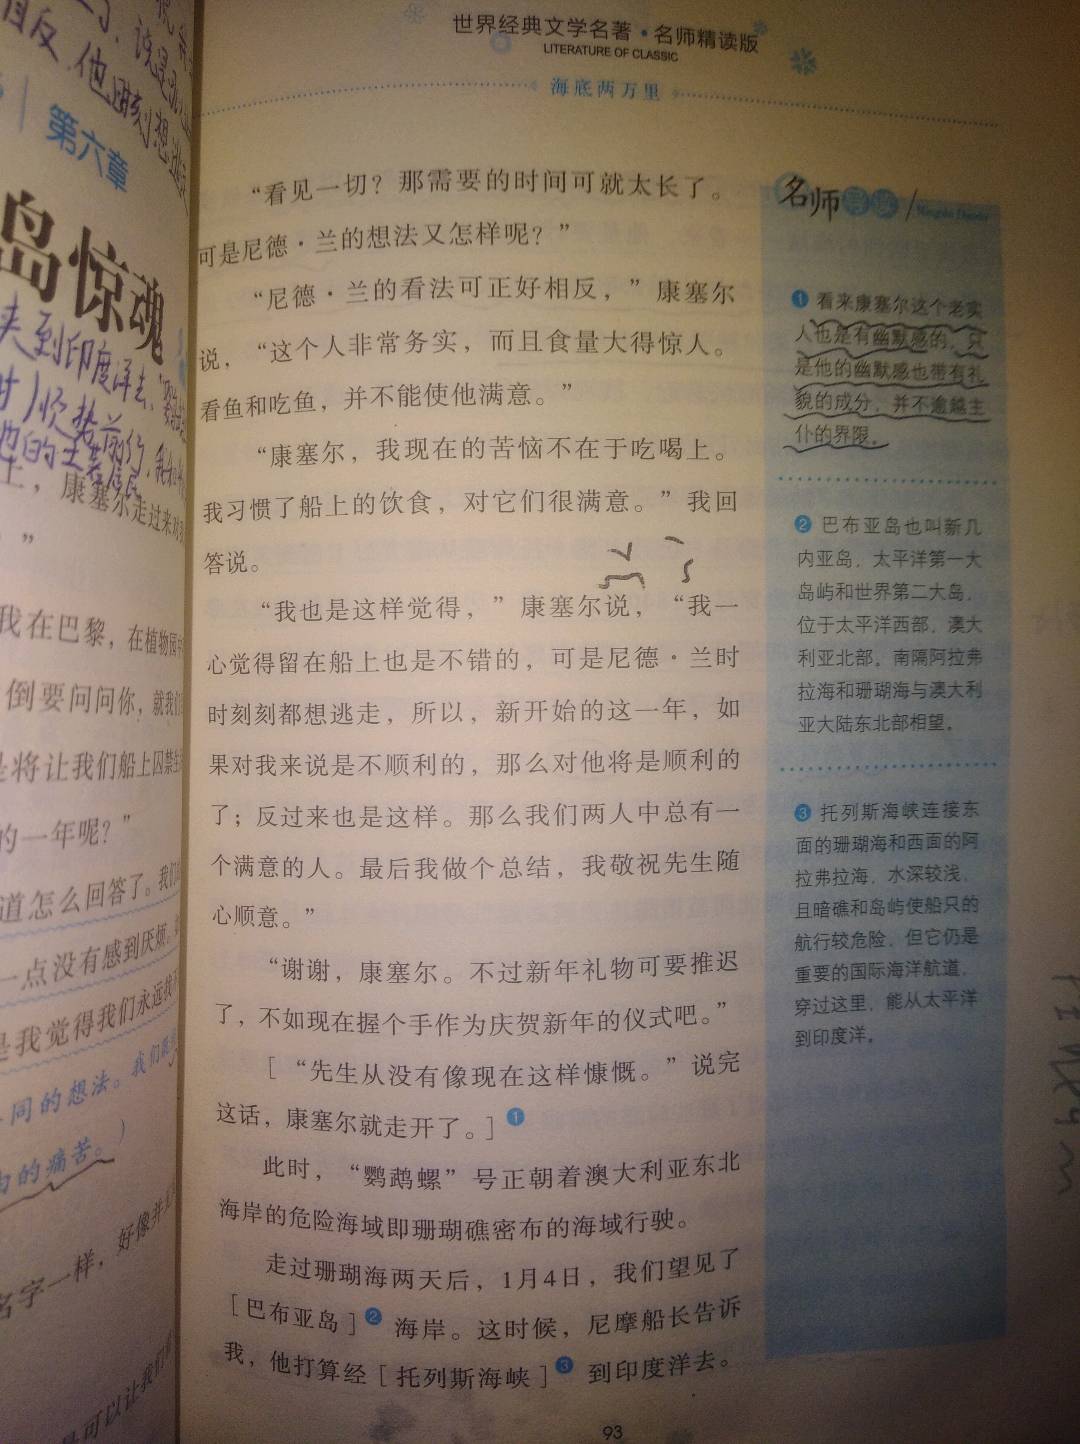 第六章
岛惊魂
夹到印度洋去
康塞尔走过来对
”
我在巴黎，在植物园
倒要问问你，就我们
是将让我们船上囚禁生
的一年呢？”
道怎么回答了。我们
一点没有感到厌烦。
是我觉得我们永远找不
同的想法。我们
的痛苦。）
名字一样，好像并
是可以让我们
世界经典文学名著·名师精读版
LITERATURE OF CLASSIC
海底两万里
“看见一切？那需要的时间可就太长了。
可是尼德·兰的想法又怎样呢？”
“尼德·兰的看法可正好相反，”康塞尔
说，“这个人非常务实，而且食量大得惊人。
看鱼和吃鱼，并不能使他满意。”
“康塞尔，我现在的苦恼不在于吃喝上。
我习惯了船上的饮食，对它们很满意。”我回
答说。
“我也是这样觉得，”康塞尔说，“我一
心觉得留在船上也是不错的，可是尼德·兰时
时刻刻都想逃走，所以，新开始的这一年，如
果对我来说是不顺利的，那么对他将是顺利的
了；反过来也是这样。那么我们两人中总有一
个满意的人。最后我做个总结，我敬祝先生随
心顺意。”
“谢谢，康塞尔。不过新年礼物可要推迟
了，不如现在握个手作为庆贺新年的仪式吧。”
[“先生从没有像现在这样慷慨。”说完
这话，康塞尔就走开了。]❶
此时，“鹦鹉螺”号正朝着澳大利亚东北
海岸的危险海域即珊瑚礁密布的海域行驶。
走过珊瑚海两天后，1月4日，我们望见了
[巴布亚岛]❷海岸。这时候，尼摩船长告诉
我，他打算经[托列斯海峡]❸到印度洋去。
名师导读/Mingshi Daodu
❶ 看来康塞尔这个老实
人也是有幽默感的，只
是他的幽默感也带有礼
貌的成分，并不逾越主
仆的界限。
❷ 巴布亚岛也叫新几
内亚岛，太平洋第一大
岛屿和世界第二大岛，
位于太平洋西部，澳大
利亚北部。南隔阿拉弗
拉海和珊瑚海与澳大利
亚大陆东北部相望。
❸ 托列斯海峡连接东
面的珊瑚海和西面的阿
拉弗拉海，水深较浅，
且暗礁和岛屿使船只的
航行较危险，但它仍是
重要的国际海洋航道，
穿过这里，能从太平洋
到印度洋。
93